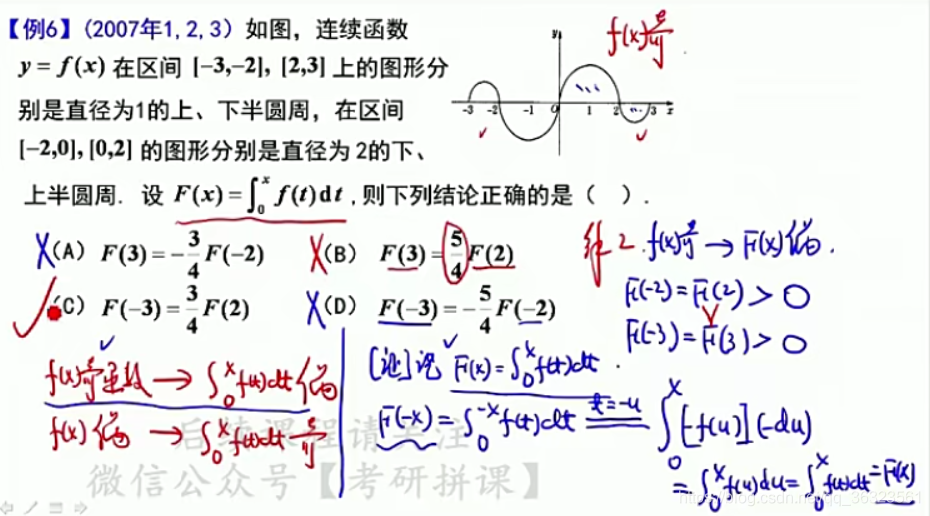 【例6】(2007年1,2,3) 如图，连续函数
y = f(x) 在区间 [-3,-2], [2,3] 上的图形分
别是直径为1的上、下半圆周，在区间
[-2,0], [0,2] 的图形分别是直径为 2的下、
上半圆周. 设 F(x) = ∫₀ˣ f(t)dt ,则下列结论正确的是（ ）.
y
-3 -2 -1 O 1 2 3 x
f(x)奇
X (A) F(3) = -3/4 F(-2) X (B) F(3) = 5/4 F(2)
✓ (C) F(-3) = 3/4 F(2) X (D) F(-3) = -5/4 F(-2)
2. f(x)奇 → F(x)偶.
F(-2) = F(2) > 0
F(-3) = F(3) > 0
f(x)奇函数 → ∫₀ˣ f(t)dt 偶
f(x) 偶 → ∫₀ˣ f(t)dt 奇
[证] 记 F(x) = ∫₀ˣ f(t)dt .
F(-x) = ∫₀⁻ˣ f(t)dt t=-u ∫₀ˣ [-f(u)](-du)
= ∫₀ˣ f(u)du = ∫₀ˣ f(t)dt = F(x)
后续课程请关注
微信公众号【考研拼课】